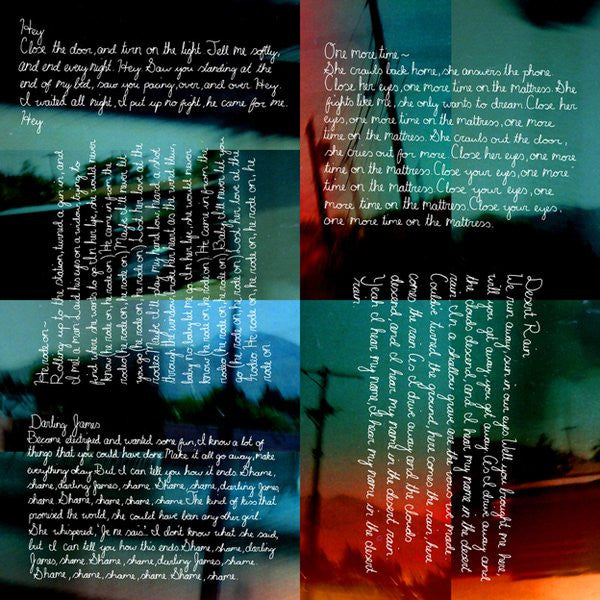 Hey
Close the door, and turn on the light Tell me softly,
and end every night. Hey. Saw you standing at the
end of my bed, saw you pacing, over, and over Hey.
I waited all night, I put up no fight, he came for me.
Hey
One more time ~
She crawls back home, she answers the phone.
Close her eyes, one more time on the mattress. She
fights like me, she only wants to dream. Close her
eyes, one more time on the mattress, one more
time on the mattress. She crawls out the door,
she cries out for more. Close her eyes, one more
time on the mattress. Close your eyes, one more
time on the mattress. Close your eyes, one
more time on the mattress. Close your eyes,
one more time on the mattress.
He rode on ~
Rolling up to the station, turned a gun in, and
I met a man. Lied her eyes on a widow trying to
find where she wants to go In her life, she would never
know (he rode on, he rode on) He came in from the
rodeo (he rode on, he rode on) Maybe I'll never let
you go (he rode on, he rode on). Lost her love at the
rodeo. Maybe I'll play my hand low, heard a shot
through the window. Took her heart as the wind blew,
baby no baby let me go. In her life, she would never
know (he rode on, he rode on) He came in from the
rodeo (he rode on, he rode on) Baby I'll never let you
go (he rode on, he rode on) Lost her love at the
rodeo He rode on, he rode on, he rode on, he
rode on.
Desert Rain
We run away, sun in our eyes. Well you brought me here,
will you get away, you get away. As I drive away and
the clouds descend, and I hear my name in the desert
rain. In a shallow grave are the vows we made,
Couldve turned the ground, here comes the rain, here
comes the rain. As I drive away and the clouds
descend, and I hear my name in the desert rain.
Yeah I hear my name, I hear my name in the desert
rain.
Darling James
Became destroyed and wanted some fun, I know a lot of
things that you could have done Make it all go away, make
everything okay. But I can tell you how it ends. Shame,
shame, darling James, shame. Shame, shame, darling James,
shame Shame, shame, shame, shame. The kind of kiss that
promised the world, she could have been any other girl.
She whispered, 'Je ne sais'. I don't know what she said,
but I can tell you how this ends. Shame, shame, darling
James, shame. Shame, shame, darling James, shame.
Shame, shame, shame, shame Shame, shame.